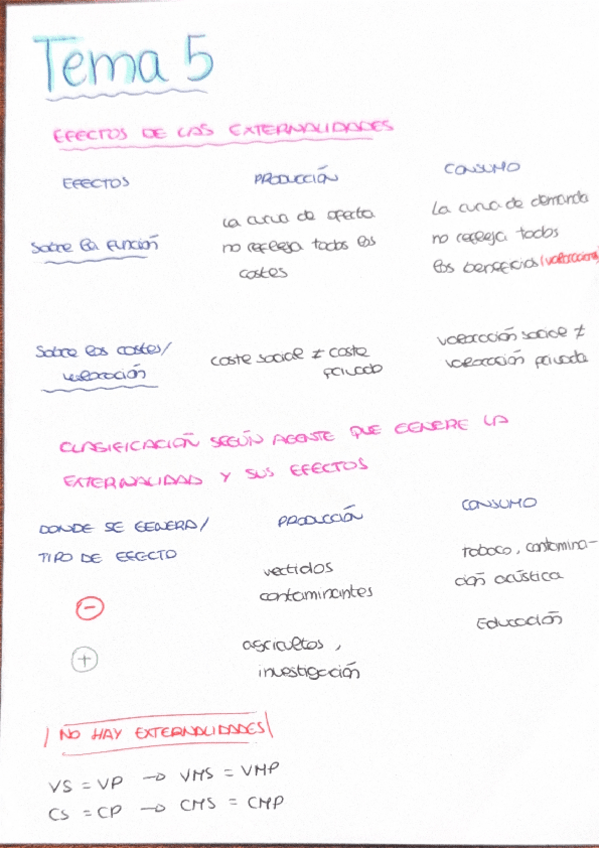 Tema 5
EFECTOS DE LAS EXTERNALIDADES
EFECTOS PRODUCCIÓN CONSUMO
Sobre la función
La curva de oferta
no refleja todos los
costes
La curva de demanda
no refleja todos
los beneficios (valoraciones)
Sobre los costes/
valoración
coste social ≠ coste
privado
valoración social ≠
valoración privada
CLASIFICACIÓN SEGÚN AGENTE QUE GENERE LA
EXTERNALIDAD Y SUS EFECTOS
DONDE SE GENERA/
TIPO DE EFECTO
PRODUCCIÓN
CONSUMO
-
vertidos
contaminantes
tabaco, contamina-
ción acústica
+
agricultos,
investigación
Educación
NO HAY EXTERNALIDADES
VS = VP → VMS = VMP
CS = CP → CMS = CMP